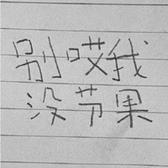 别哎我
没节果